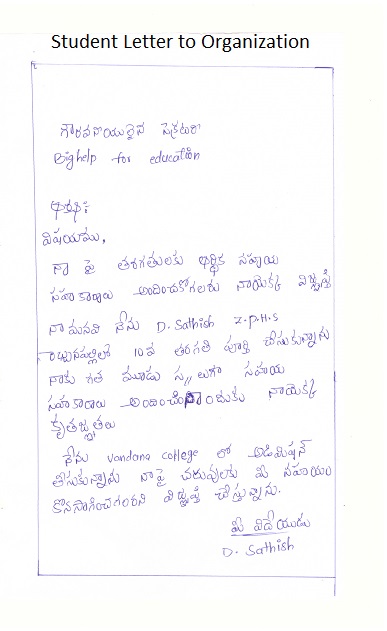 Student Letter to Organization
గౌరవనీయులైన సెక్రటరీ
Bighelp for education
విషయము,
నా పై తరగతులకు ఆర్థిక సహాయ
సహకారాలు అందించగలరు నాయొక్క విజ్ఞప్తి
నా మనవి నేను D. Sathish Z.P.H.S
10వ తరగతి పూర్తి చేసుకున్నాను
నాకు గత మూడు స,, లుగా సహాయ
సహకారాలు అందించినందుకు నాయొక్క
కృతజ్ఞతలు
నేను vandana college లో అడిమిషన్
తీసుకున్నాను నా పై చదువులకు మీ సహాయం
కొనసాగించగలరని విజ్ఞప్తి చేస్తున్నాను.
మీ విదేయుడు
D. Sathish